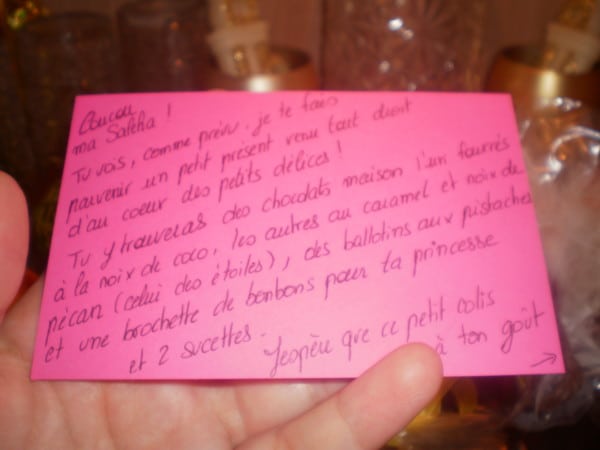 Coucou
ma Saliha !
Tu vois, comme prévu, je te fais
parvenir un petit présent venu tout droit
d'au coeur des petits délices !
Tu y trouveras des chocolats maison l'un fourrés
à la noix de coco, les autres au caramel et noix de
pécan (celui des étoiles), des ballotins aux pistaches
et une brochette de bonbons pour ta princesse
et 2 sucettes.
Jespère que ce petit colis
à ton goût